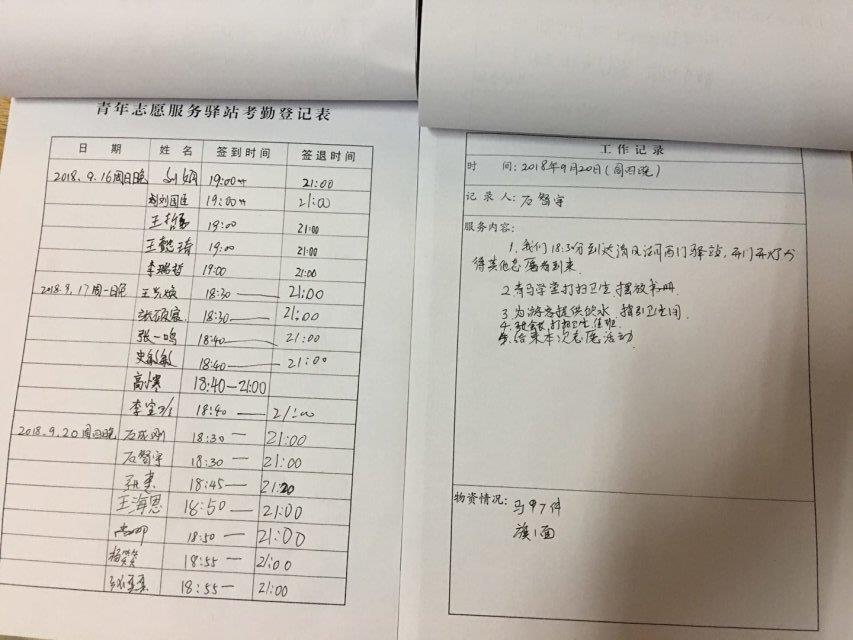 青年志愿服务驿站考勤登记表
日 期 姓 名 签到时间 签退时间
2018.9.16周日晚 刘娟 19:00 21:00
刘国臣 19:00 21:00
王哲 19:00 21:00
王懿琦 19:00 21:00
李瑞哲 19:00 21:00
2018.9.17周一晚 18:30 21:00
18:30 21:00
张一鸣 18:40 21:00
史敏敏 18:40 21:00
高小寒 18:40—21:00
李 18:40 — 21:00
2018.9.20周四晚 石成刚 18:30 — 21:00
石智宇 18:30 — 21:00
18:45 — 21:20
王海恩 18:50 — 21:00
18:50 — 21:00
杨 18:55 — 21:00
18:55 — 21:00
工作记录
时 间: 2018年9月20日(周四晚)
记录人: 石智宇
服务内容:
1.我们18:30分到达清风 西门驿站,开门开灯
得其他志愿者到来.
2. 学堂打扫卫生 摆放
3.为游客提供饮水,指引卫生间.
4. 打扫卫生
5.结束本次志愿活动
物资情况: 马甲7件
旗1面